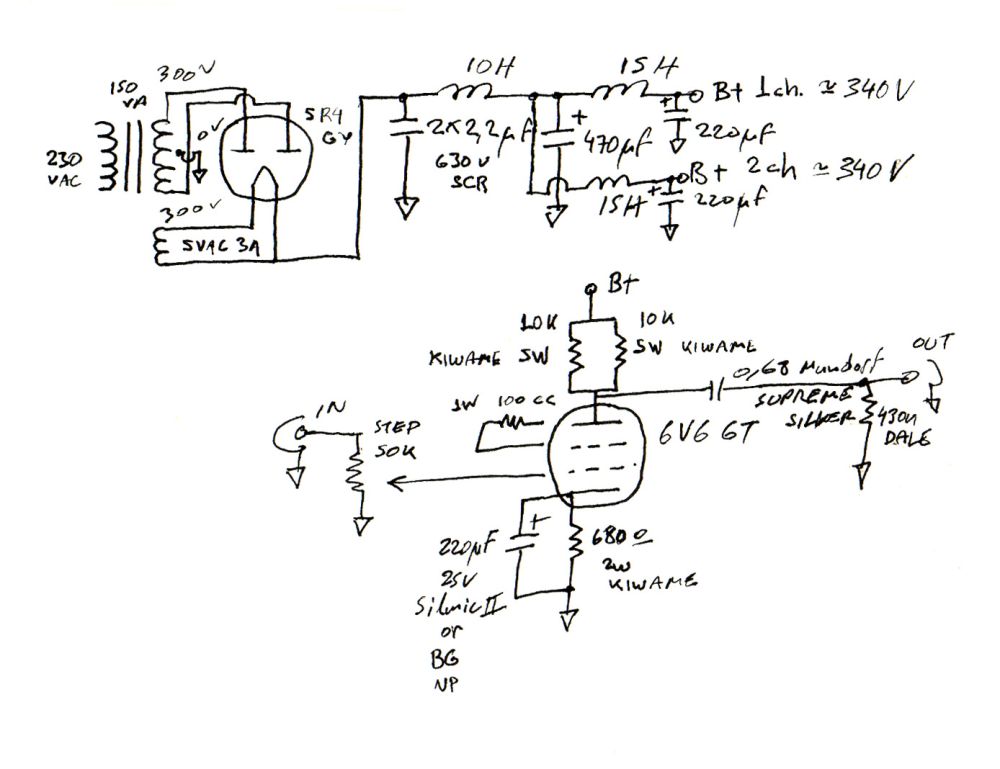 150 VA
300V
230 VAC
0V
300V
5VAC 3A
5R4 GY
10H
15H
2x2,2µF
630V
SCR
470µF
B+ 1ch. ≃ 340V
220µF
B+ 2ch ≃ 340V
15H
220µF
B+
10K
KIWAME 5W
10K
5W KIWAME
0,68 Mundorf
SUPREME
SILVER
OUT
430K
DALE
1W 100 CC
6V6 GT
IN
STEP
50K
220µF
25V
Silmic II
or
BG
NP
680Ω
2W
KIWAME